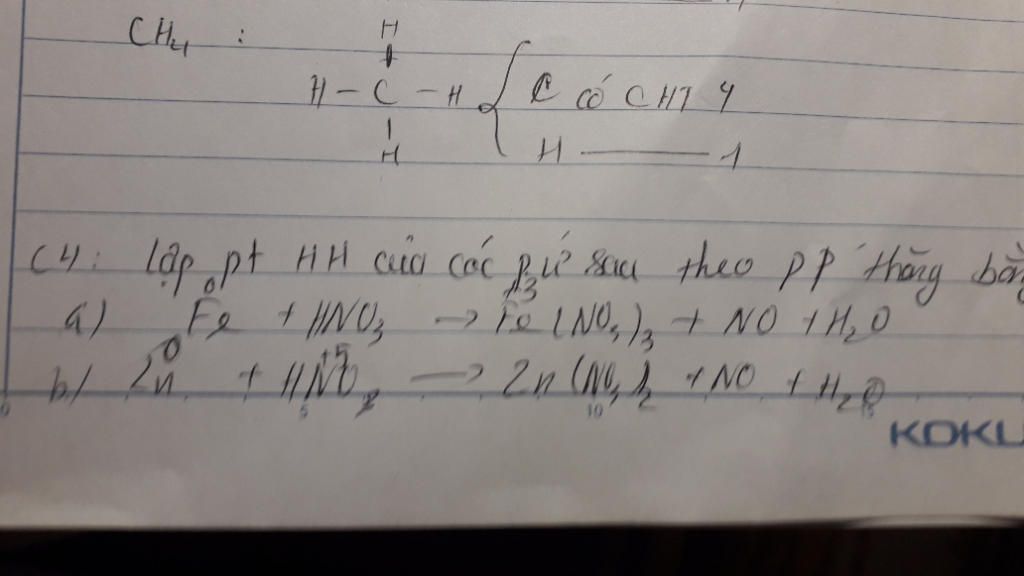 CH4 :
H
H - C - H { C có CHT 4
H H —— 1
C4: lập pt HH của các pứ sau theo pp thăng bằng
0 +3
a) Fe + HNO3 → Fe(NO3)3 + NO + H2O
0 +5
b) Zn + HNO3 → Zn(NO3)2 + NO + H2O
0 5 10 15